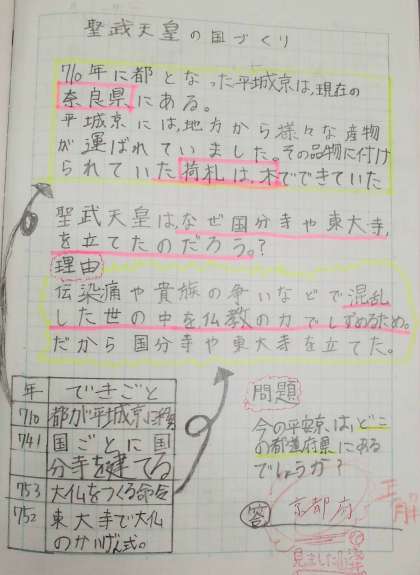 聖武天皇の国づくり
710年に都となった平城京は,現在の
奈良県にある。
平城京には,地方から様々な産物
が運ばれていました。その品物に付け
られていた荷札は,木でできていた
聖武天皇は,なぜ国分寺や東大寺,
を立てたのだろう。?
理由
伝染痛や貴族の争いなどで混乱
した世の中を,仏教の力でしずめるため。
だから国分寺や東大寺を立てた。
年 できごと
710 都が平城京に移る
741 国ごとに国
分寺を建てる
753 大仏をつくる命令
752 東大寺で大仏
のかいげん式。
問題
今の平安京は,どこ
の都道府県にある
でしょうか?
答 京都府
正解
見ました